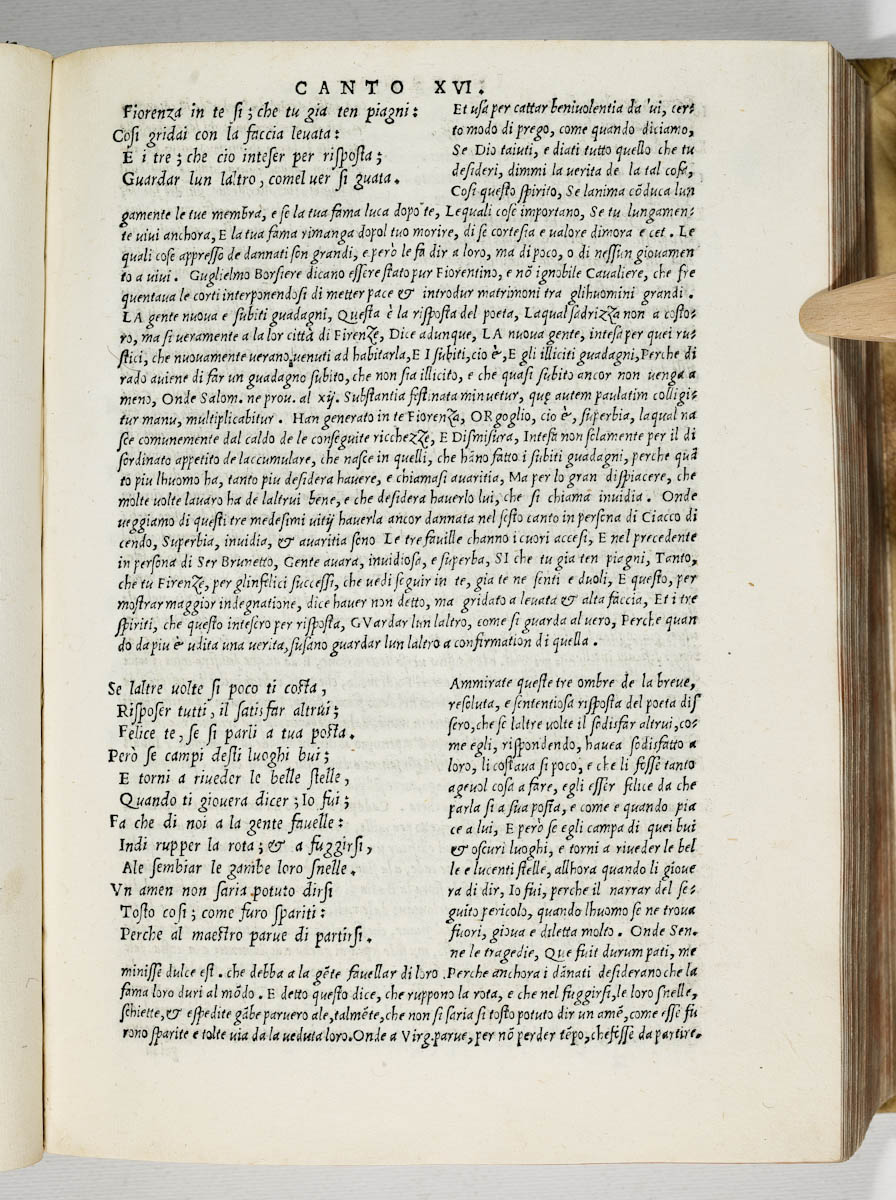 CANTO XVI.
Fiorenza in te si; che tu gia ten piagni:
Cosi gridai con la faccia levata:
E i tre; che cio inteser per risposta;
Guardar lun laltro, comel ver si guata.
Et usa per cattar benivolentia da lui, cer-
to modo di prego, come quando diciamo,
Se Dio taiuti, e diati tutto quello che tu
desideri, dimmi la verita de la tal cosa,
Cosi questo spirito, Se lanima cõduca lun
gamente le tue membra, e se la tua fama luca dopo te, Lequali cose importano, Se tu lungamen-
te vivi anchora, E la tua fama rimanga dopol tuo morire, di se cortesia e valore dimora e cet. Le
quali cose appresso de dannati son grandi, e però le fa dir a loro, ma di poco, o di nessun giovamen
to a vivi. Guglielmo Borsiere dicano essere stato pur Fiorentino, e nõ ignobile Cavaliere, che fre
quentava le corti interponendosi di metter pace & introdur matrimoni tra glihuomini grandi.
LA gente nuova e subiti guadagni, Questa è la risposta del poeta, Laqual sadrizza non a costo-
ro, ma si veramente a la lor città di Firenze, Dice adunque, LA nuova gente, intesa per quei ru-
stici, che nuovamente verano venuti ad habitarla, E I subiti, cio è, E gli illiciti guadagni, Perche di
rado aviene di far un guadagno subito, che non sia illicito, e che quasi subito ancor non venga a
meno, Onde Salom. ne prov. al xij. Substantia festinata minuetur, quę autem paulatim colligi-
tur manu, multiplicabitur. Han generato in te Fiorenza, ORgoglio, cio è, superbia, laqual na
sce comunemente dal caldo de le conseguite ricchezze, E Dismisura, Intesa non solamente per il di
sordinato appetito de laccumulare, che nasce in quelli, che hãno fatto i subiti guadagni, perche quã
to piu lhuomo ha, tanto piu desidera havere, e chiamasi avaritia, Ma per lo gran dispiacere, che
molte volte lavaro ha de laltrui bene, e che desidera haverlo lui, che si chiama invidia. Onde
veggiamo di questi tre medesimi vitij haverla ancor dannata nel sesto canto in persona di Ciacco di
cendo, Superbia, invidia, & avaritia sono Le tre faville channo i cuori accesi, E nel precedente
in persona di Ser Brunetto, Gente avara, invidiosa, e superba, SI che tu gia ten piagni, Tanto,
che tu Firenze, per glinfelici successi, che vedi seguir in te, gia te ne senti e duoli, E questo, per
mostrar maggior indegnatione, dice haver non detto, ma gridato a levata & alta faccia, Et i tre
spiriti, che questo intesero per risposta, GVardar lun laltro, come si guarda al vero, Perche quan
do da piu è udita una verita, susano guardar lun laltro a confirmation di quella.
Se laltre volte si poco ti costa,
Risposer tutti, il satisfar altrui;
Felice te, se si parli a tua posta.
Però se campi desti luoghi bui;
E torni a riveder le belle stelle,
Quando ti giovera dicer; Io fui;
Fa che di noi a la gente favelle:
Indi rupper la rota; & a fuggirsi,
Ale sembiar le gambe loro snelle.
Vn amen non saria potuto dirsi
Tosto cosi; come furo spariti:
Perche al maestro parue di partirsi.
Ammirate queste tre ombre de la breve,
resoluta, e sententiosa risposta del poeta dis
sero, che se laltre volte il sodisfar altrui, co-
me egli, rispondendo, havea sodisfatto a
loro, li costava si poco, e che li fosse tanto
agevol cosa a fare, egli esser felice da che
parla si a sua posta, e come e quando pia
ce a lui, E però se egli campa di quei bui
& oscuri luoghi, e torni a riveder le bel
le e lucenti stelle, allhora quando li giove
ra di dir, Io fui, perche il narrar del se-
guito pericolo, quando lhuomo se ne trova
fuori, giova e diletta molto. Onde Sen-
ne le tragedie, Que fuit durum pati, me
minisse dulce est. che debba a la gẽte favellar di loro. Perche anchora i dãnati desiderano che la
fama loro duri al mõdo. E detto questo dice, che ruppono la rota, e che nel fuggirsi, le loro snelle,
schiette, & espedite gãbe paruero ale, talmẽte, che non si saria si tosto potuto dir un amẽ, come esse fu
rono sparite e tolte via da la veduta loro. Onde a Virg. parue, per nõ perder tẽpo, che fosse da partire.